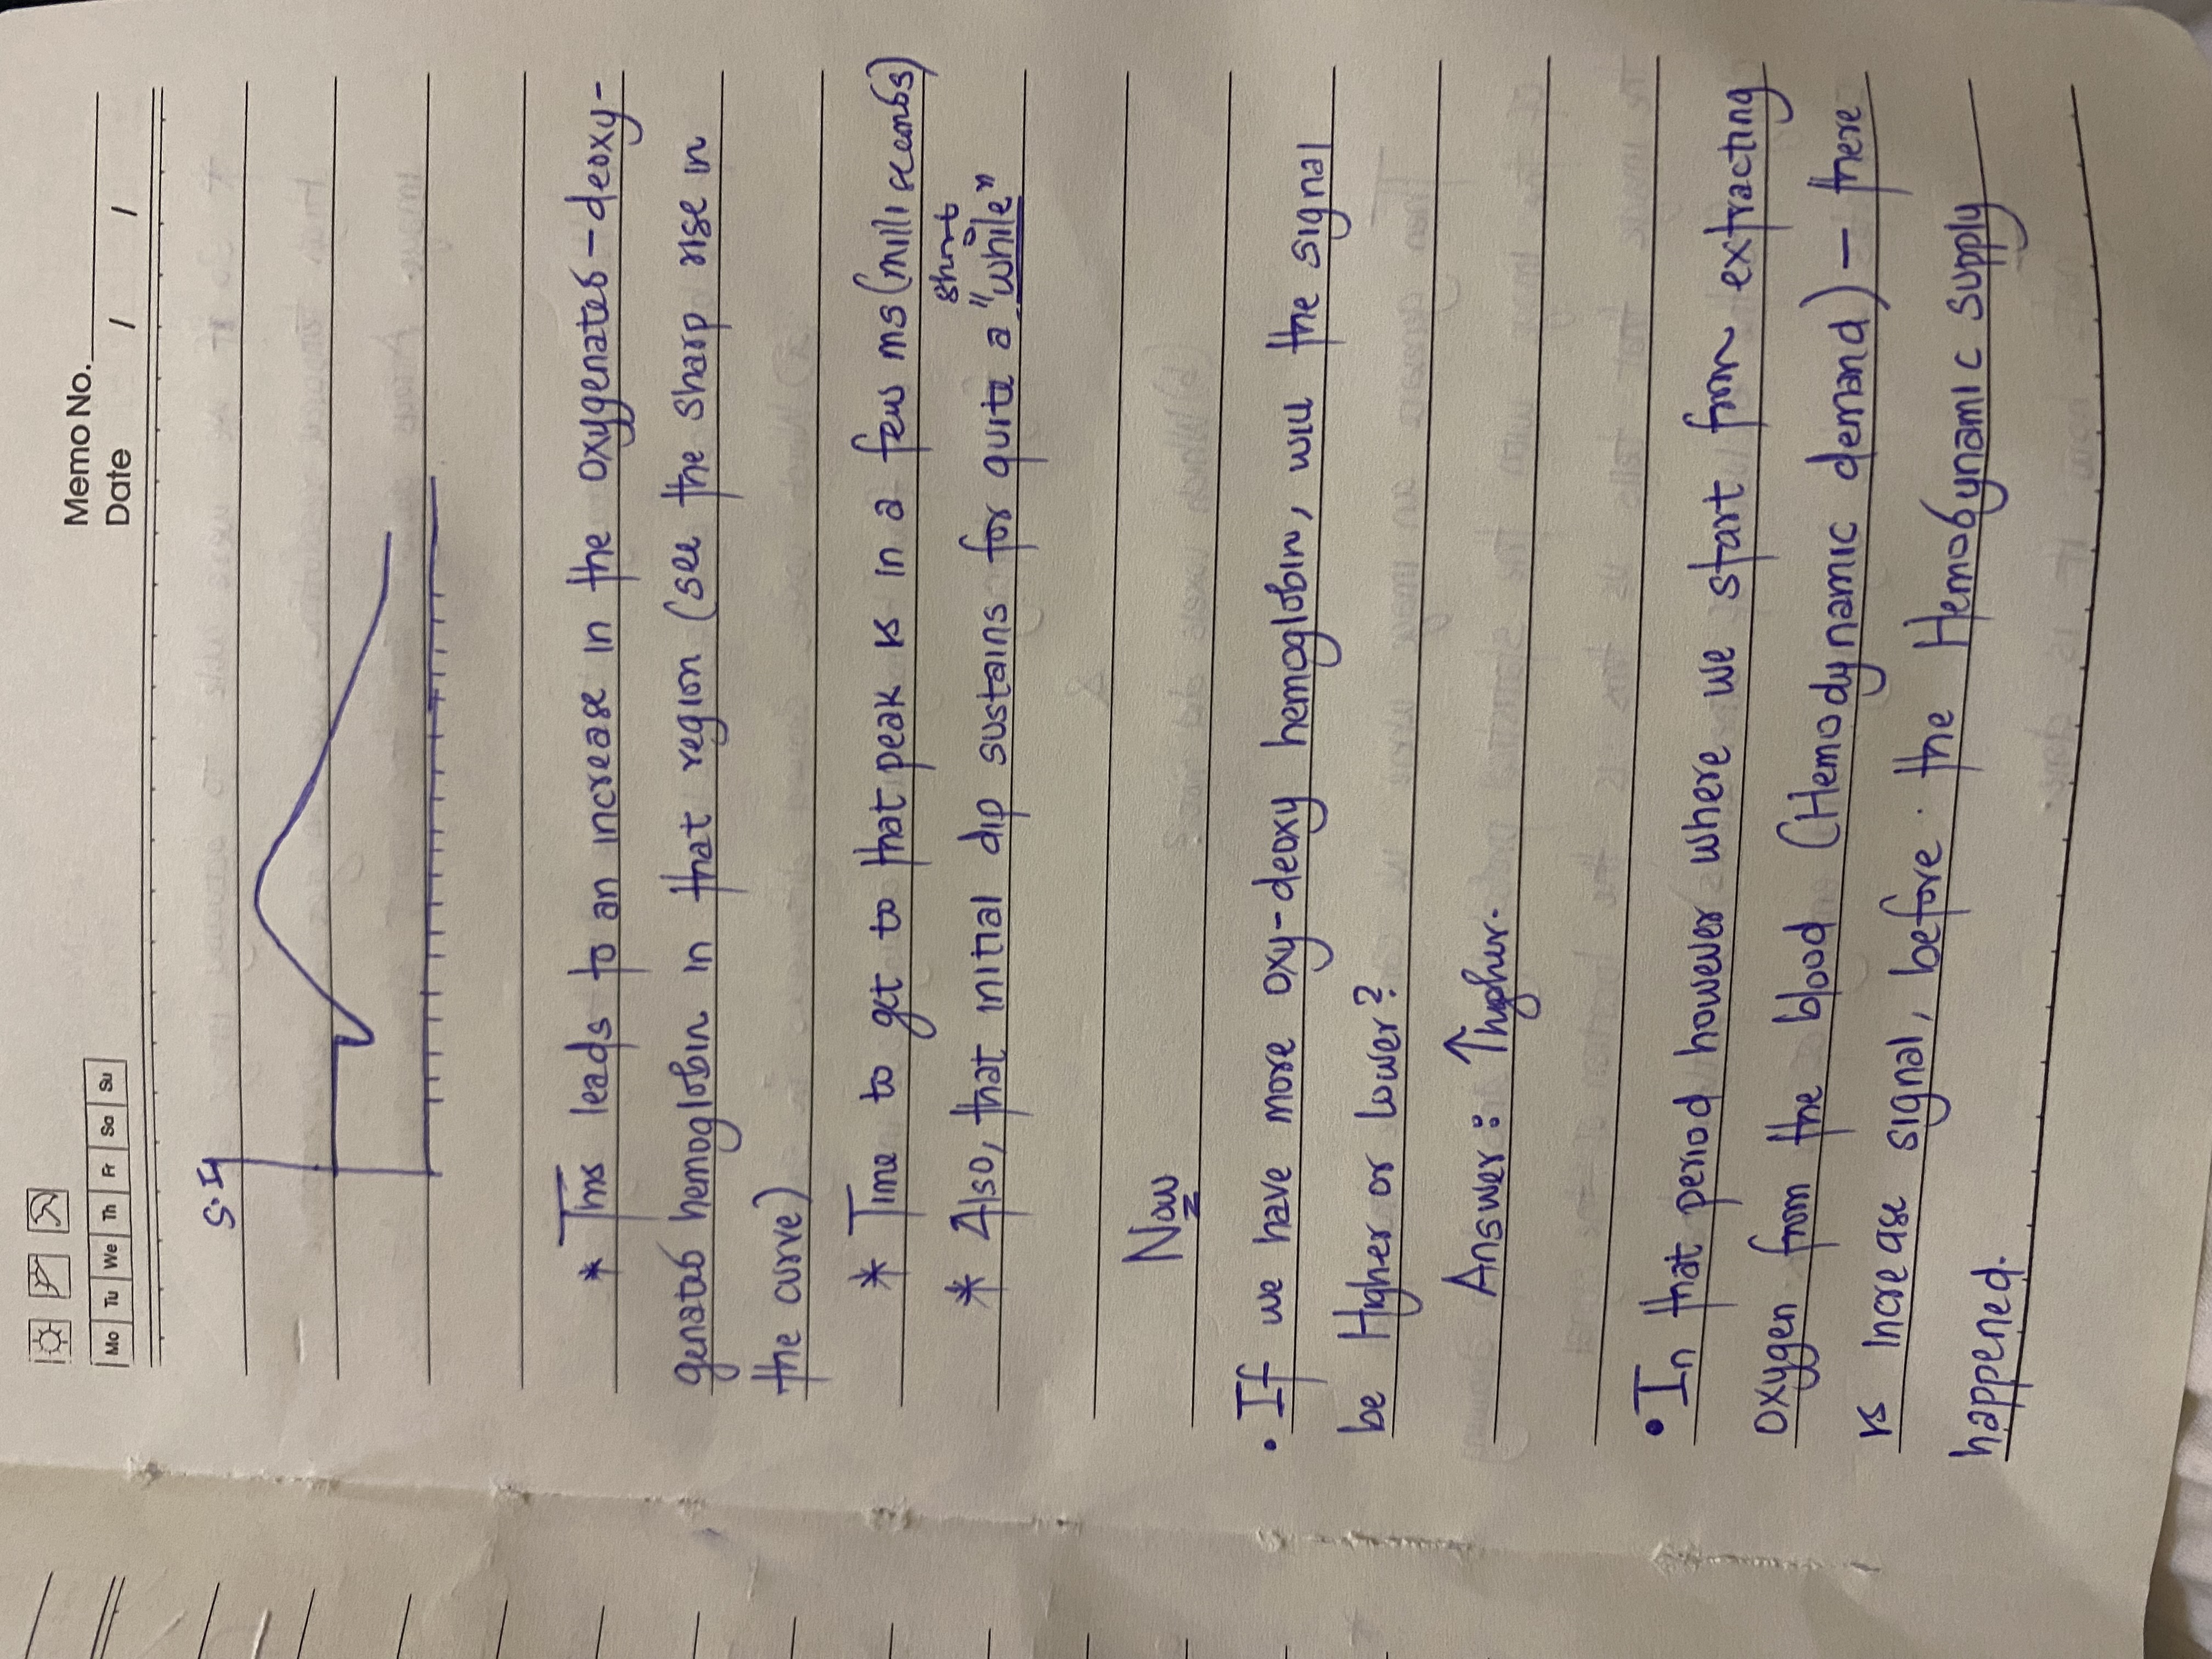 Memo No.
Mo Tu We Th Fr Sa Su
Date / /
S.I
* This leads to an increase in the oxygenated-deoxy-
genated hemoglobin in that region (see the sharp rise in
the curve)
* Time to get to that peak is in a few ms (milli seconds)
short
* Also, that initial dip sustains for quite a "while"
Now
• If we have more oxy-deoxy hemoglobin, will the signal
be Higher or lower?
Answer: ↑ higher.
• In that period however where we start from extracting
oxygen from the blood (Hemodynamic demand) - there
is increase signal, before the Hemodynamic supply
happened.